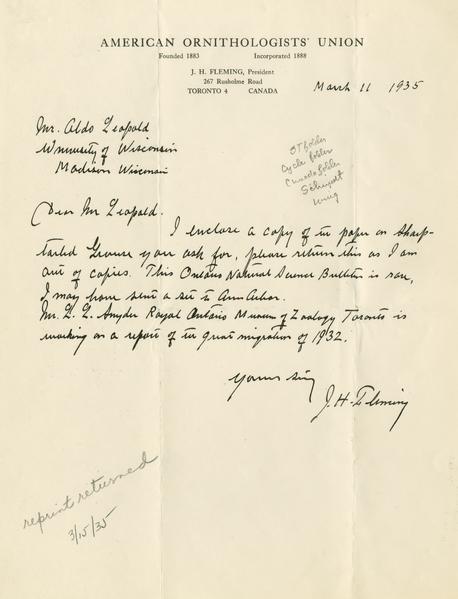 AMERICAN ORNITHOLOGISTS' UNION
Founded 1883 Incorporated 1888
J. H. FLEMING, President
267 Rusholme Road
TORONTO 4 CANADA
March 11 1935
Mr. Aldo Leopold
University of Wisconsin
Madison Wisconsin
OT folder
Cycle folder
Canada folder
Dear Mr Leopold.
I enclose a copy of the paper on Sharp-
tailed Grouse you ask for, please return this as I am
out of copies. This Ontario Natural Science Bulletin is rare,
I may have sent a set to Ann Arbor.
Mr. L. L. Snyder Royal Ontario Museum of Zoology Toronto is
working on a report of the great migration of 1932.
Yours
J. H. Fleming
reprint returned
3/15/35